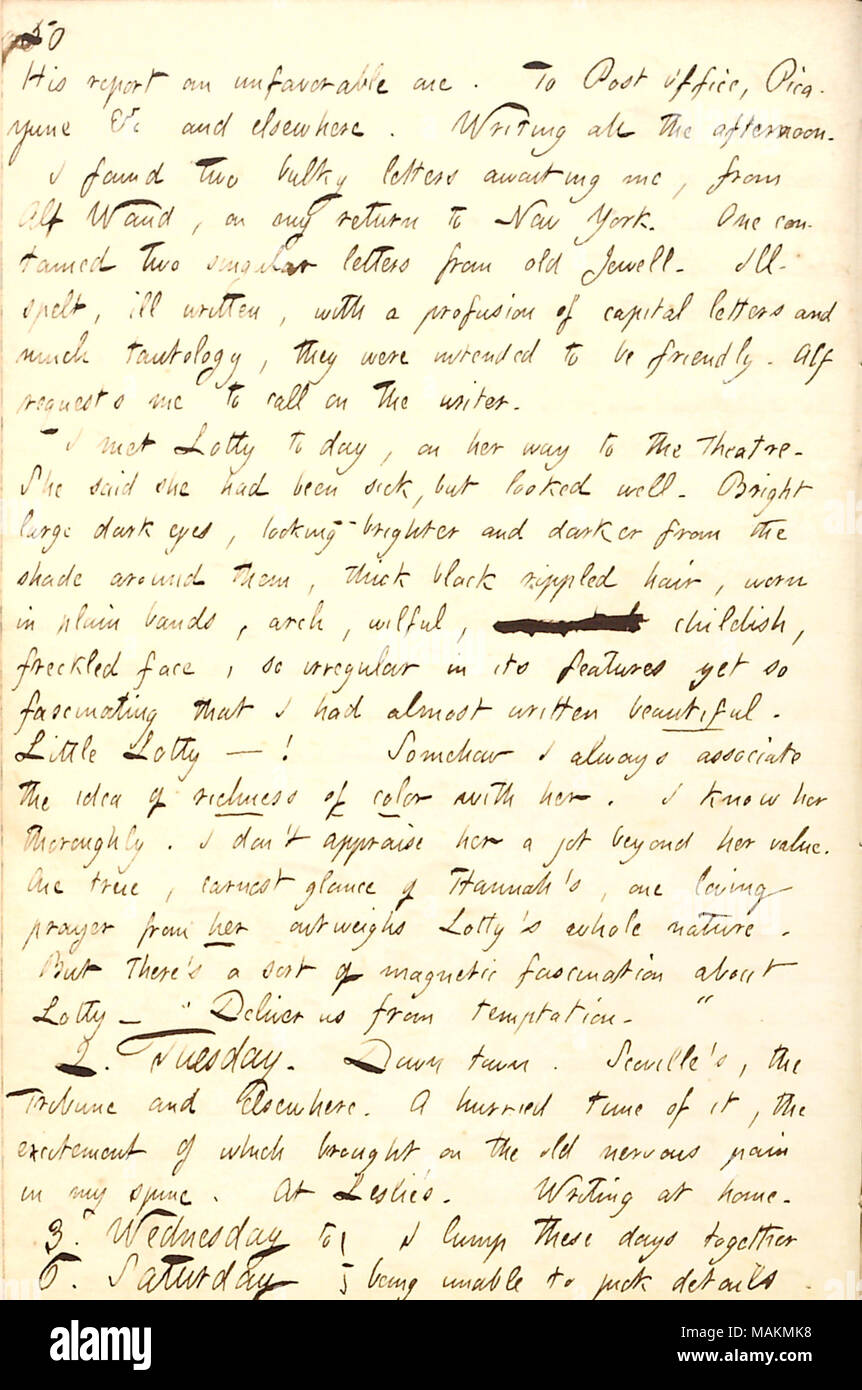 50
His report an unfavorable one. To Post Office, Pica-
yune &c and elsewhere. Writing all the afternoon.
I found two bulky letters awaiting me, from
Alf Waud, on my return to New York. One con-
tained two singular letters from old Jewell. Ill-
spelt, ill written, with a profusion of capital letters and
much tautology, they were intended to be friendly. Alf
requests me to call on the writer.
I met Lotty to day, on her way to the Theatre.
She said she had been sick, but looked well. Bright
large dark eyes, looking brighter and darker from the
shade around them, thick black rippled hair, worn
in plain bands, arch, wilful, childish,
freckled face, so irregular in its features yet so
fascinating that I had almost written beautiful.
Little Lotty — ! Somehow I always associate
the idea of richness of color with her. I know her
thoroughly. I don't appraise her a jot beyond her value.
One true, earnest glance of Hannah's, one loving
prayer from her outweighs Lotty's whole nature.
But there's a sort of magnetic fascination about
Lotty — "Deliver us from temptation."
2. Tuesday. Down town. Scoville's, the
Tribune and Elsewhere. A hurried time of it, the
excitement of which brought on the old nervous pain
in my spine. At Leslie's. Writing at home.
3. Wednesday to } I lump these days together
6. Saturday } being unable to pick details.
alamy
Image ID: MAKMK8
www.alamy.com